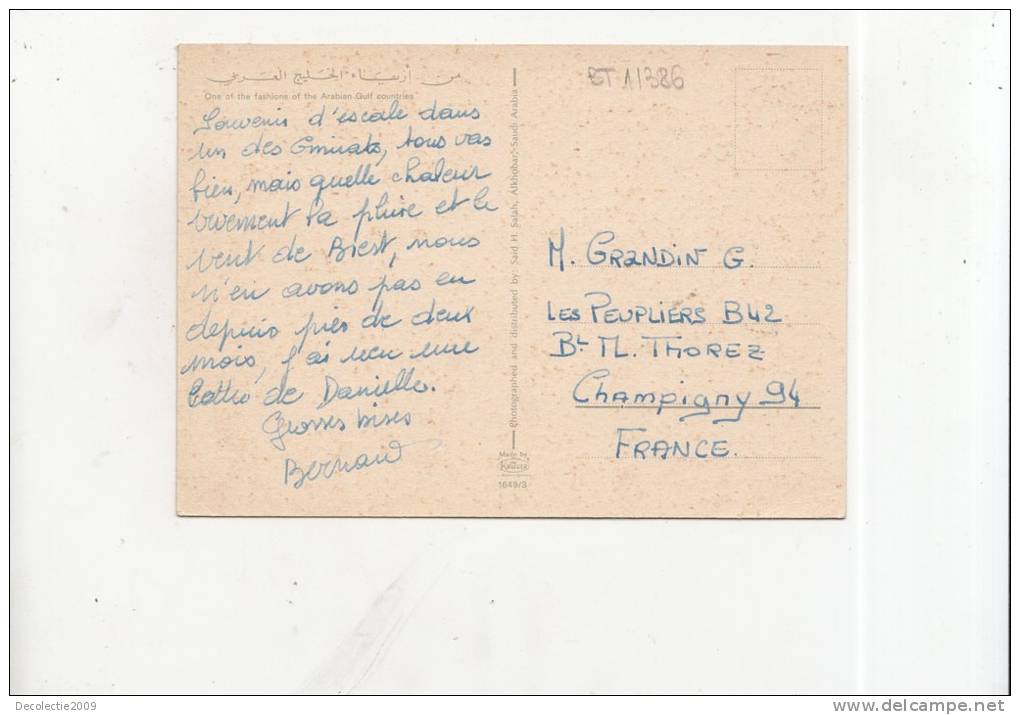 من أزياء الخليج العربي
One of the fashions of the Arabian Gulf countries
Souvenir d'escale dans
un des Emirats, tous vas
bien, mais quelle chaleur
vivement la pluie et le
vent de Brest, nous
n'en avons pas eu
depuis près de deux
mois, j'ai reçu une
lettre de Danielle.
Grosses bises
Bernard
Photographed and distributed by: Said H. Salah, Alkhobar, Saudi Arabia
Made by
1649/3
ET 11386
M. GRANDIN G.
LES PEUPLIERS B42
Bt M. THOREZ
Champigny 94
FRANCE.
Decolectie2009
delcampe.net